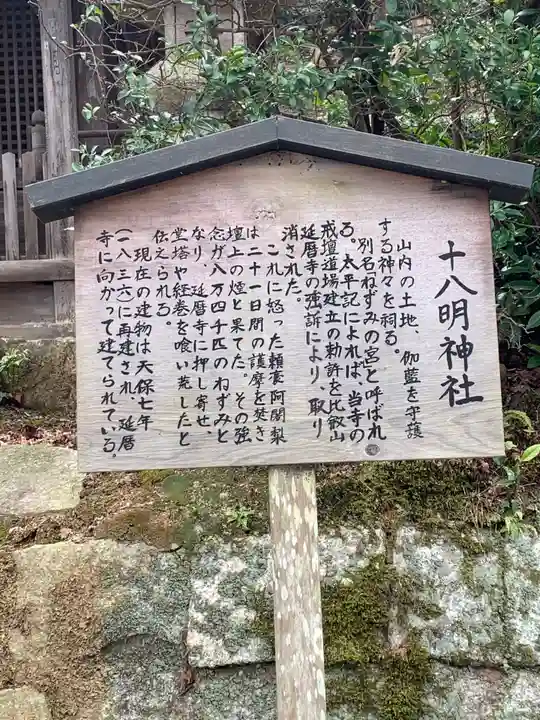 十八明神社
山内の土地、伽藍を守護
する神々を祠る。
別名ねずみの宮と呼ばれ
る。太平記によれば、当寺の
戒壇道場建立の勅許を比叡山
延暦寺の強訴により、取り
消された。
これに怒った頼豪阿闍梨
は二十一日間の護摩を焚き
壇上の煙と果てた。その強
念が八万四千匹のねずみと
なり、延暦寺に押し寄せ、
堂塔や経巻を喰い荒したと
伝えられる。
現在の建物は天保七年
(一八三六)に再建され、延暦
寺に向かって建てられている。